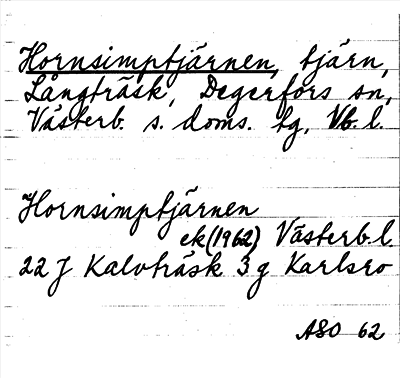 Hornsimptjärnen, tjärn,
Långträsk, Degerfors sn,
Västerb. s. doms. tg, Vb. l.
Hornsimptjärnen
ek (1962) Västerb. l.
22 J Kalvträsk 3 g Karlsro
ASO 62